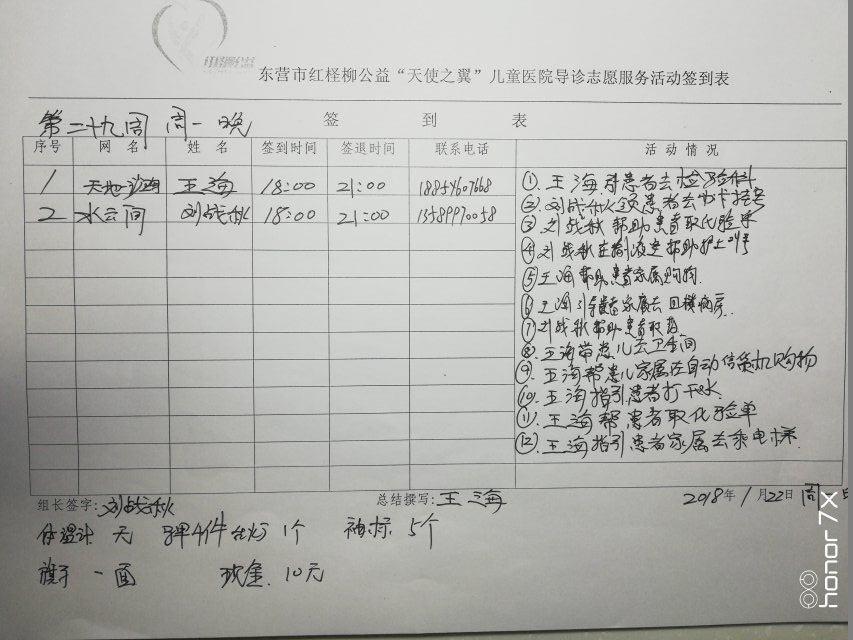 东营市红柽柳公益“天使之翼”儿童医院导诊志愿服务活动签到表
第二十九周 周一晚 签到表
序号 网名 姓名 签到时间 签退时间 联系电话 活动情况
1 王海 18:00 21:00 18854607668
2 水云间 刘战秋 18:00 21:00 13589970058
①.王海引患者去检验科
②.刘战秋领患者去办卡挂号
③刘战秋帮助患者取化验单
④刘战秋在输液室帮助护士叫号
⑤王海帮助患者家属购物.
⑥王海引导患者家属去四楼病房.
⑦刘战秋帮助患者取药.
⑧.王海带患儿去卫生间
⑨.王海帮患儿家属在自动售货机购物
⑩.王海指引患者打开水
⑪.王海帮患者取化验单
⑫.王海指引患者家属去乘电梯.
组长签字:刘战秋 总结撰写:王海 2018年1月22日 周
体温计 无 4件 1个 袖标 5个
旗子 一面 现金.10元
honor 7X